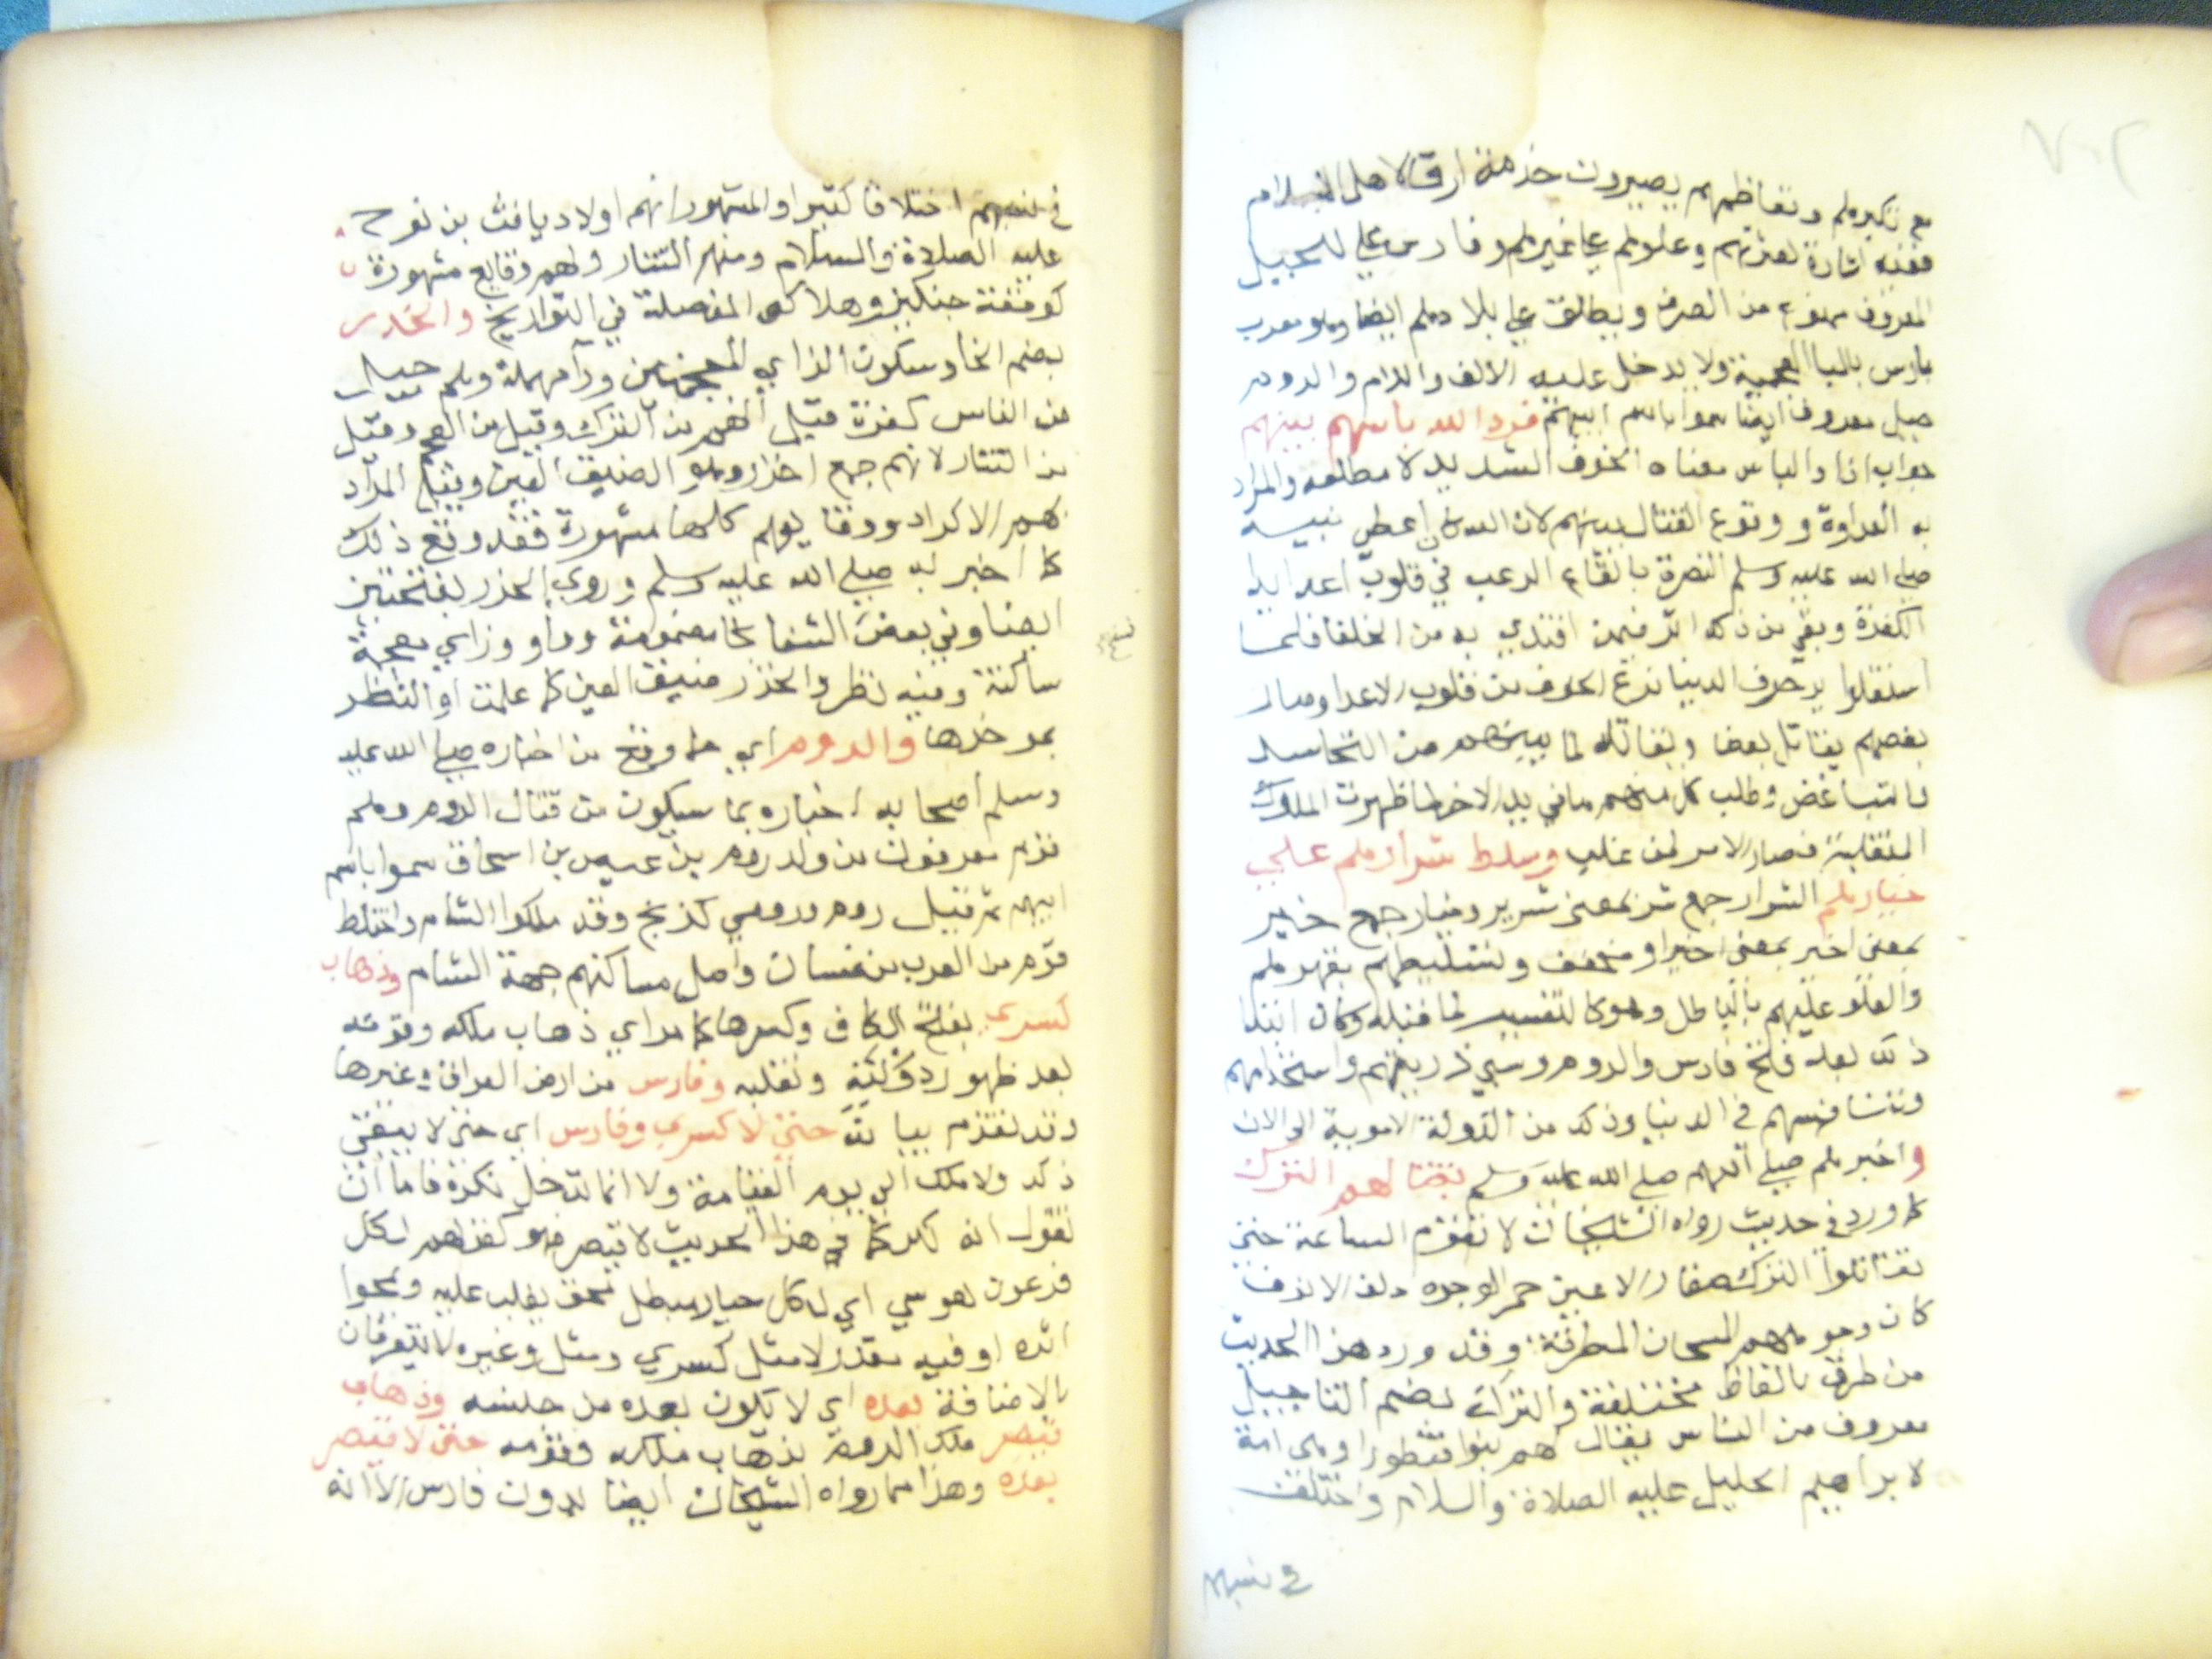 ٧٠٢
مع تكبرهم وتعاظمهم يصيرون خدمة ارقا لاهل الاسلام
ففيه اشارة لعزتهم وعلوهم على غيرهم وفارس علي للجيل
المعروف ممنوع من الصرف ويطلق على بلادهم ايضا وهو معرب
بارس بالبا العجمية ولا يدخل عليه الالف واللام والروم
جيل معروف ايضا سموا باسم ابيهم فرد الله بأسهم بينهم
جواب اذا والباس معناه الخوف الشديد لا مطلقه والمراد
به العداوة ووقوع القتال بينهم لان الله اعطى نبيه
صلى الله عليه وسلم النصرة بالقاء الرعب في قلوب اعدايه
الكفرة وبقي من ذلك اثر فيمن اقتدي به من الخلفا فلما
استقلوا بزخرف الدنيا نزع الخوف من قلوب الاعدا وصار
بعضهم يقاتل بعضا ويقاتله لما بينهم من التحاسد
والتباغض وطلب كل منهم ما في يد الاخر فظهرت الملوك
المتغلبة فصار الامر لمن غلب وسلط شرارهم على
خيارهم الشرار جمع شر بمعنى شرير وخيار جمع خير
بمعنى اخير بمعنى اخير او مخفف وتسليطهم بقهرهم
والعلو عليهم بالباطل وهو كالتفسير لما قبله وكان ابتدا
ذلك بعد فتح فارس والروم وسبي ذريتهم واستخدامهم
وتنافسهم في الدنيا وذلك من الدولة الاموية الى الان
واخبرهم صلى اللهم صلى الله عليه وسلم بقتالهم الترك
كما ورد في حديث رواه الشيخان لا تقوم الساعة حتى
تقاتلوا الترك صغار الاعين حمر الوجوه دلف الانوف
كان وجوههم المجان المطرقة وقد ورد هذا الحديث
من طرق بالفاظ مختلفة والترك بضم التا جيل
معروف من الناس يقال هم بنوا قنطورا وهي امة
لابراهيم الخليل عليه الصلاة والسلام واختلف
في نسبهم
في نسبهم اختلافا كثيرا والمشهور انهم اولاد يافث بن نوح
عليه الصلاة والسلام ومنهم التتار ولهم وقايع مشهورة
كوقعة جنكيز وهلاكو المفصلة في التواريخ والخزر
بضم الخا وسكون الزاي المعجمتين ورا مهملة وهم جيل
من الناس كفرة قيل انهم من الترك وقيل من العجم وقيل
من التتار لانهم جمع اخزر وهو الضيق العين وقيل المراد
بهم الاكراد ووقايعهم كلها مشهورة فقد وقع ذلك
كما اخبر به صلى الله عليه وسلم وروي الخزر بفتحتين
ايضا وفي بعض الشفا خا مضمومة وواو وزاي معجمة
نسخ
ساكنة وفيه نظر والخزر ضيق العين كما علمت او النظر
بموخرها والروم اي مما وقع من اخباره صلى الله عليه
وسلم اصحابه اخباره بما سيكون من قتال الروم وهم
قوم معروفون من ولد روم بن عيص بن اسحاق سموا باسم
ابيهم ثم قيل روم ورومي كزنج وقد ملكوا الشام واختلط
قوم من العرب من غسان واصل مساكنهم جهة الشام وذهاب
كسرى بفتح الكاف وكسرها كما مر اي ذهاب ملكه وقوته
بعد ظهور دولته وتغلبه وفارس من ارض العراق وغيرها
وقد تقدم بيانه حتى لا كسرى وفارس اي حتى لا يبقى
ذلك ولا ملك الى يوم القيامة ولا انما تدخل نكرة فاما ان
نقول انه نكرة كما في هذا الحديث لا قيصر فهو كقولهم لكل
فرعون موسي اي لكل جبار مبطل محق يغلب عليه ويمحوا
اثره او فيه مقدر لا مثل كسري ومثل وغيره لا يتعرفان
بالاضافة بعده اي لا يكون بعده من جنسه وذهاب
قيصر ملك الروم بذهاب ملكه وقومه حتى لا قيصر
بعده وهذا مما رواه الشيخان ايضا بدون فارس الا انه